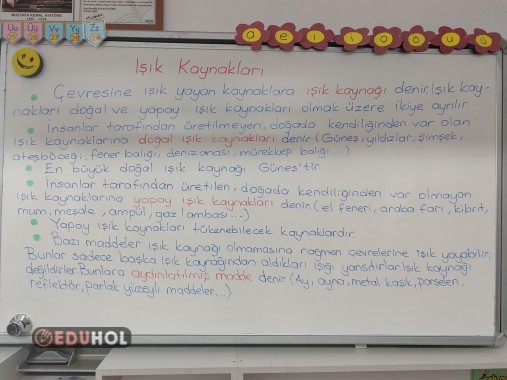 MUSTAFA KEMAL ATATÜRK
Uu Üü Vv Yy Zz
25 26 27 28 29
a e ı i o ö u ü
Işık Kaynakları
Çevresine ışık yayan kaynaklara ışık kaynağı denir. Işık kay-
nakları doğal ve yapay ışık kaynakları olmak üzere ikiye ayrılır.
İnsanlar tarafından üretilmeyen, doğada kendiliğinden var olan
ışık kaynaklarına doğal ışık kaynakları denir. (Güneş, yıldızlar, şimşek,
ateşböceği, fener balığı, denizanası, mürekkep balığı ...)
En büyük doğal ışık kaynağı Güneş'tir.
İnsanlar tarafından üretilen, doğada kendiliğinden var olmayan
ışık kaynaklarına yapay ışık kaynakları denir. (el feneri, araba farı, kibrit,
mum, meşale, ampül, gaz lambası ...)
Yapay ışık kaynakları tükenebilecek kaynaklardır.
Bazı maddeler ışık kaynağı olmamasına rağmen çevrelerine ışık yayabilir.
Bunlar sadece başka ışık kaynağından aldıkları ışığı yansıtırlar. Işık kaynağı
değildirler. Bunlara aydınlatılmış madde denir. (Ay, ayna, metal kaşık, porselen,
reflektör, parlak yüzeyli maddeler...)
EDUHOL